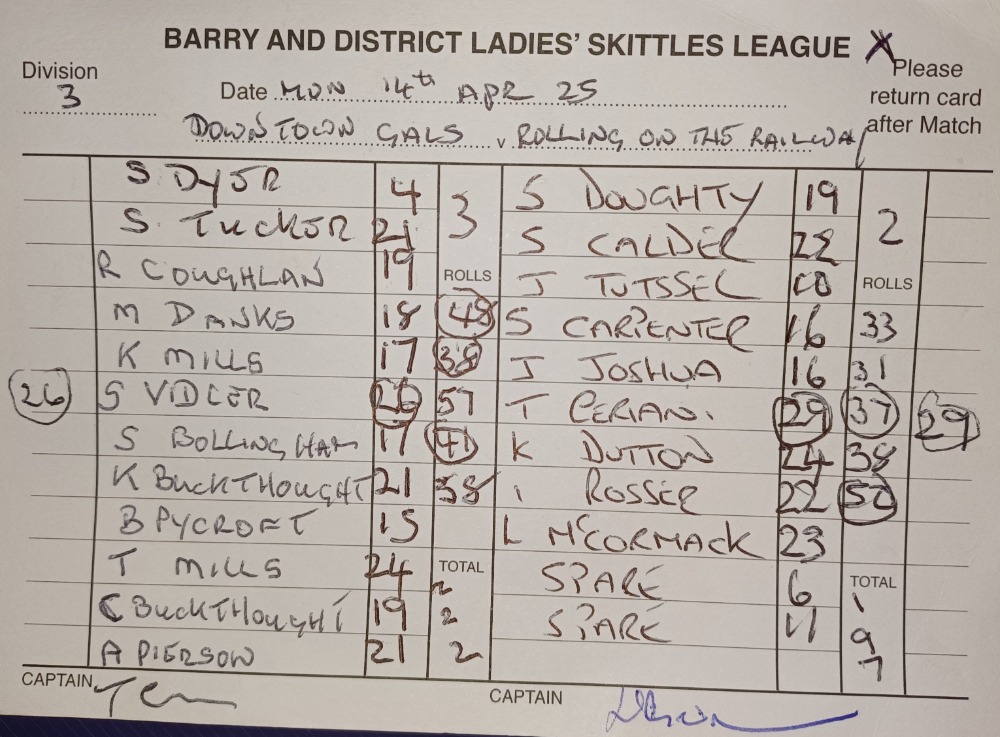 BARRY AND DISTRICT LADIES' SKITTLES LEAGUE X
Division 3
Date MON 14th APR 25
Please return card after Match
DOWNTOWN GALS v ROLLING ON THE RAILWAY
S DYER 4 3 S DOUGHTY 19 2
S. TUCKER 21 S CALDER
R COUGHLAN 19 ROLLS J TUTSSEL ROLLS
M DANKS 18 48 S CARPENTER 16 33
K MILLS 17 38 J JOSHUA 16 31
26 S VIDLER 26 T CERIANI. 29 37 29
S BOLLINGHAM 17 41 K DUTTON 24 38
K BUCKTHOUGHT 21 58 ROSSER 22
B PYCROFT 15 L McCORMACK 23
T MILLS 24 TOTAL 2 SPARE 6 TOTAL 1
C BUCKTHOUGHT 19 2 SPARE 11 9
A PIERSON 21 2 7
CAPTAIN CAPTAIN